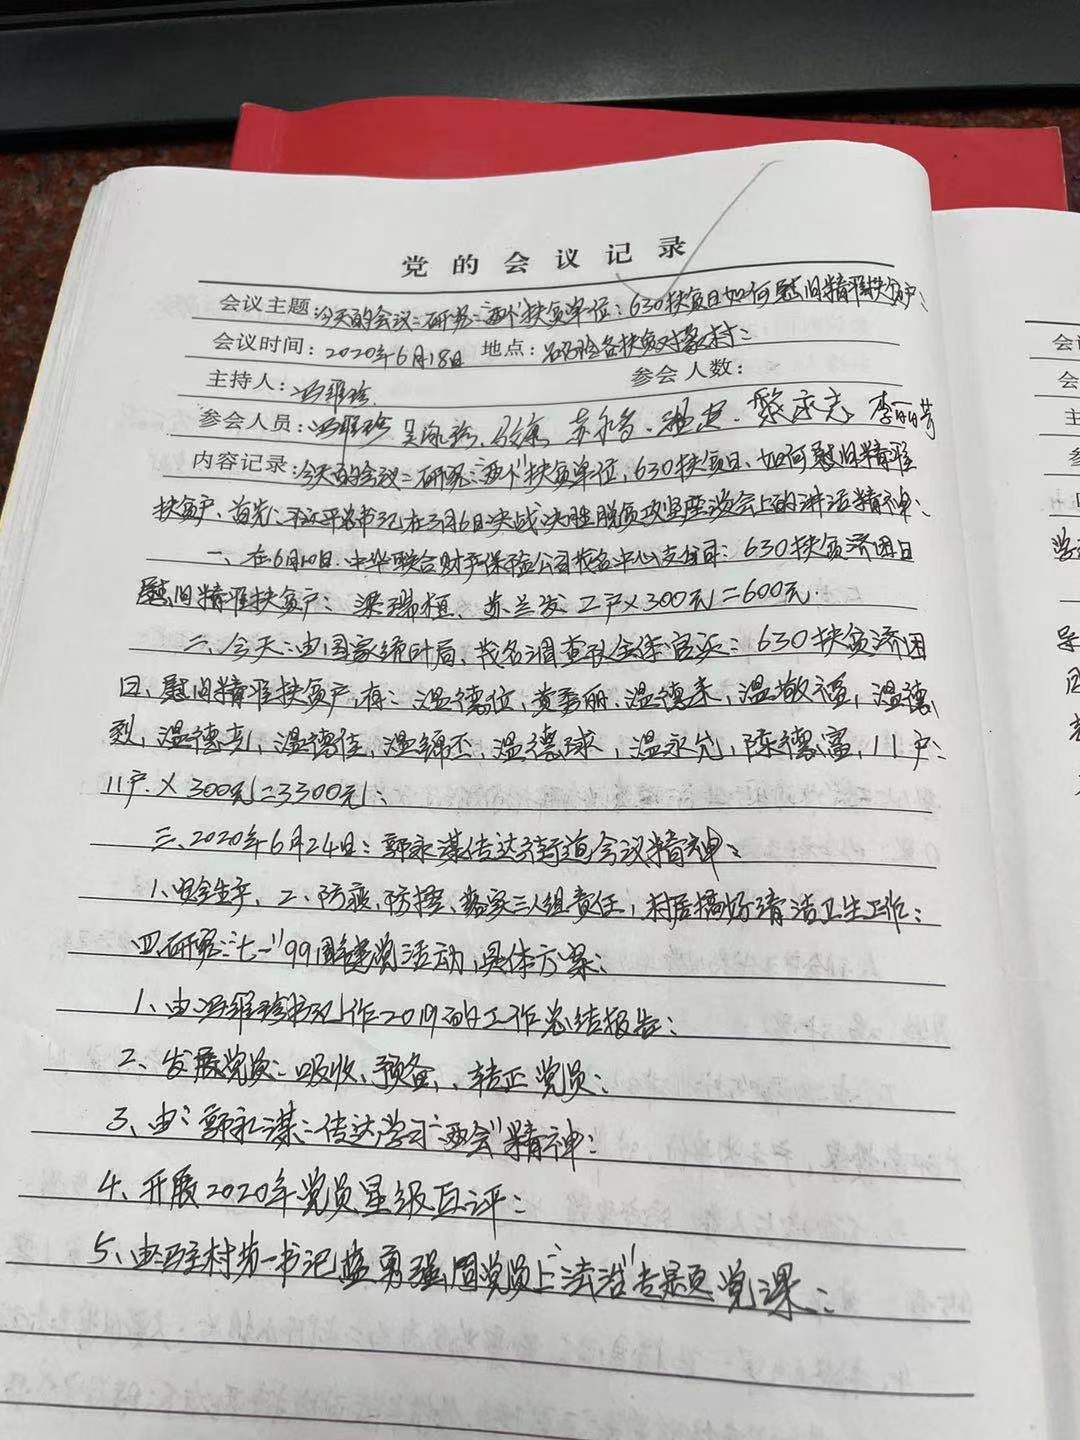 党的会议记录
会议主题:今天的会议:研究:“两个”扶贫单位:630扶贫日如何慰问精准扶贫户:
会议时间:2020年6月18日 地点:各扶贫对象村:
主持人:冯雅珍 参会人数:
参会人员:冯雅珍 李丽芳
内容记录:今天的会议:研究:“两个”扶贫单位,630扶贫日、如何慰问精准
扶贫户、首先:习近平总书记在3月6日决战决胜脱贫攻坚座谈会上的讲话精神:
一、在6月10日.中华联合财产保险公司茂名中心支公司:630扶贫济困日
慰问精准扶贫户:梁瑞恒、苏兰发 2户×300元=600元.
二、今天:由国家统计局、茂名调查队全体官兵:630扶贫济困
日、慰问精准扶贫户,有:温德位,黄秀丽、温德来,温敬福,温德
烈,温德志,温德佳,温锦丕,温德球,温永允,陈德富,11户:
11户.×300元=3300元:
三、2020年6月24日:郭永谋传达街道会议精神:
1、安全生产、二、防疫、防控、落实三人组责任,村居搞好清洁卫生工作:
四、研究:“七一”99周年建党活动,具体方案:
1、由冯雅珍书记作2019的工作总结报告:
2、发展党员:吸收、预备、转正党员:
3、由:郭永谋:传达学习“两会”精神:
4、开展2020年党员星级互评:
5、由驻村第一书记 勇强同党员上“法治”专题党课: